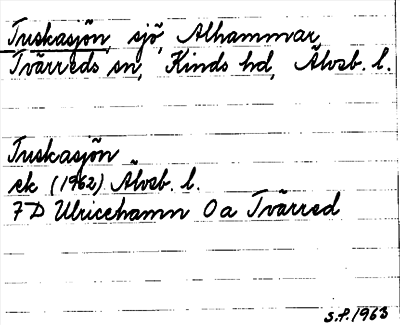 Tuskasjön, sjö, Alhammar,
Tvärreds sn, Kinds hd, Älvsb. l.
Tuskasjön
ek (1962) Älvsb. l.
7D Ulricehamn 0a Tvärred
S.P. 1963